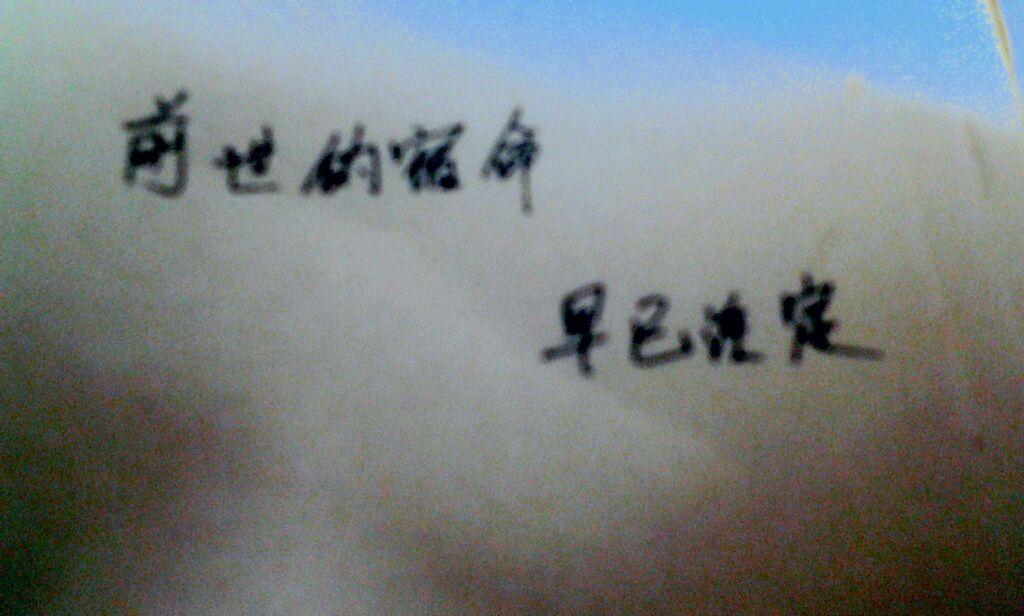 前世的宿命
早已注定